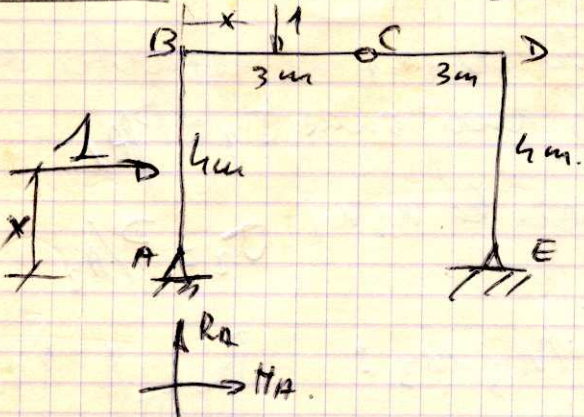 x 1
B C D
3m 3m
1
4m 4m.
x
A E
RA
HA.